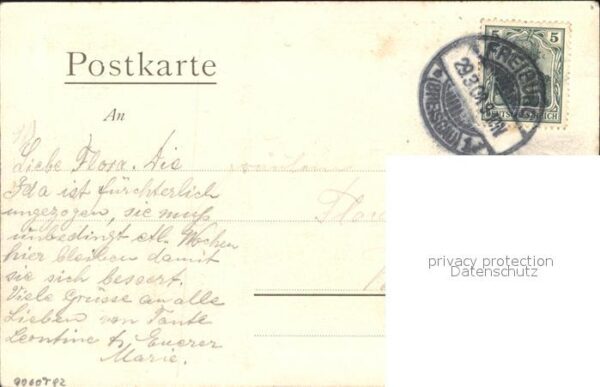 Postkarte
An
5 5
DEUTSCHES REICH
FREIBURG
(BREISGAU)
Liebe Flora. Die
Ida ist fürchterlich
ungezogen, sie muß
unbedingt etl. Wochen
hier bleiben damit
sie sich bessert.
Viele Grüsse an alle
Lieben von Tante
Leontine & Euerer
Marie.
privacy protection
Datenschutz